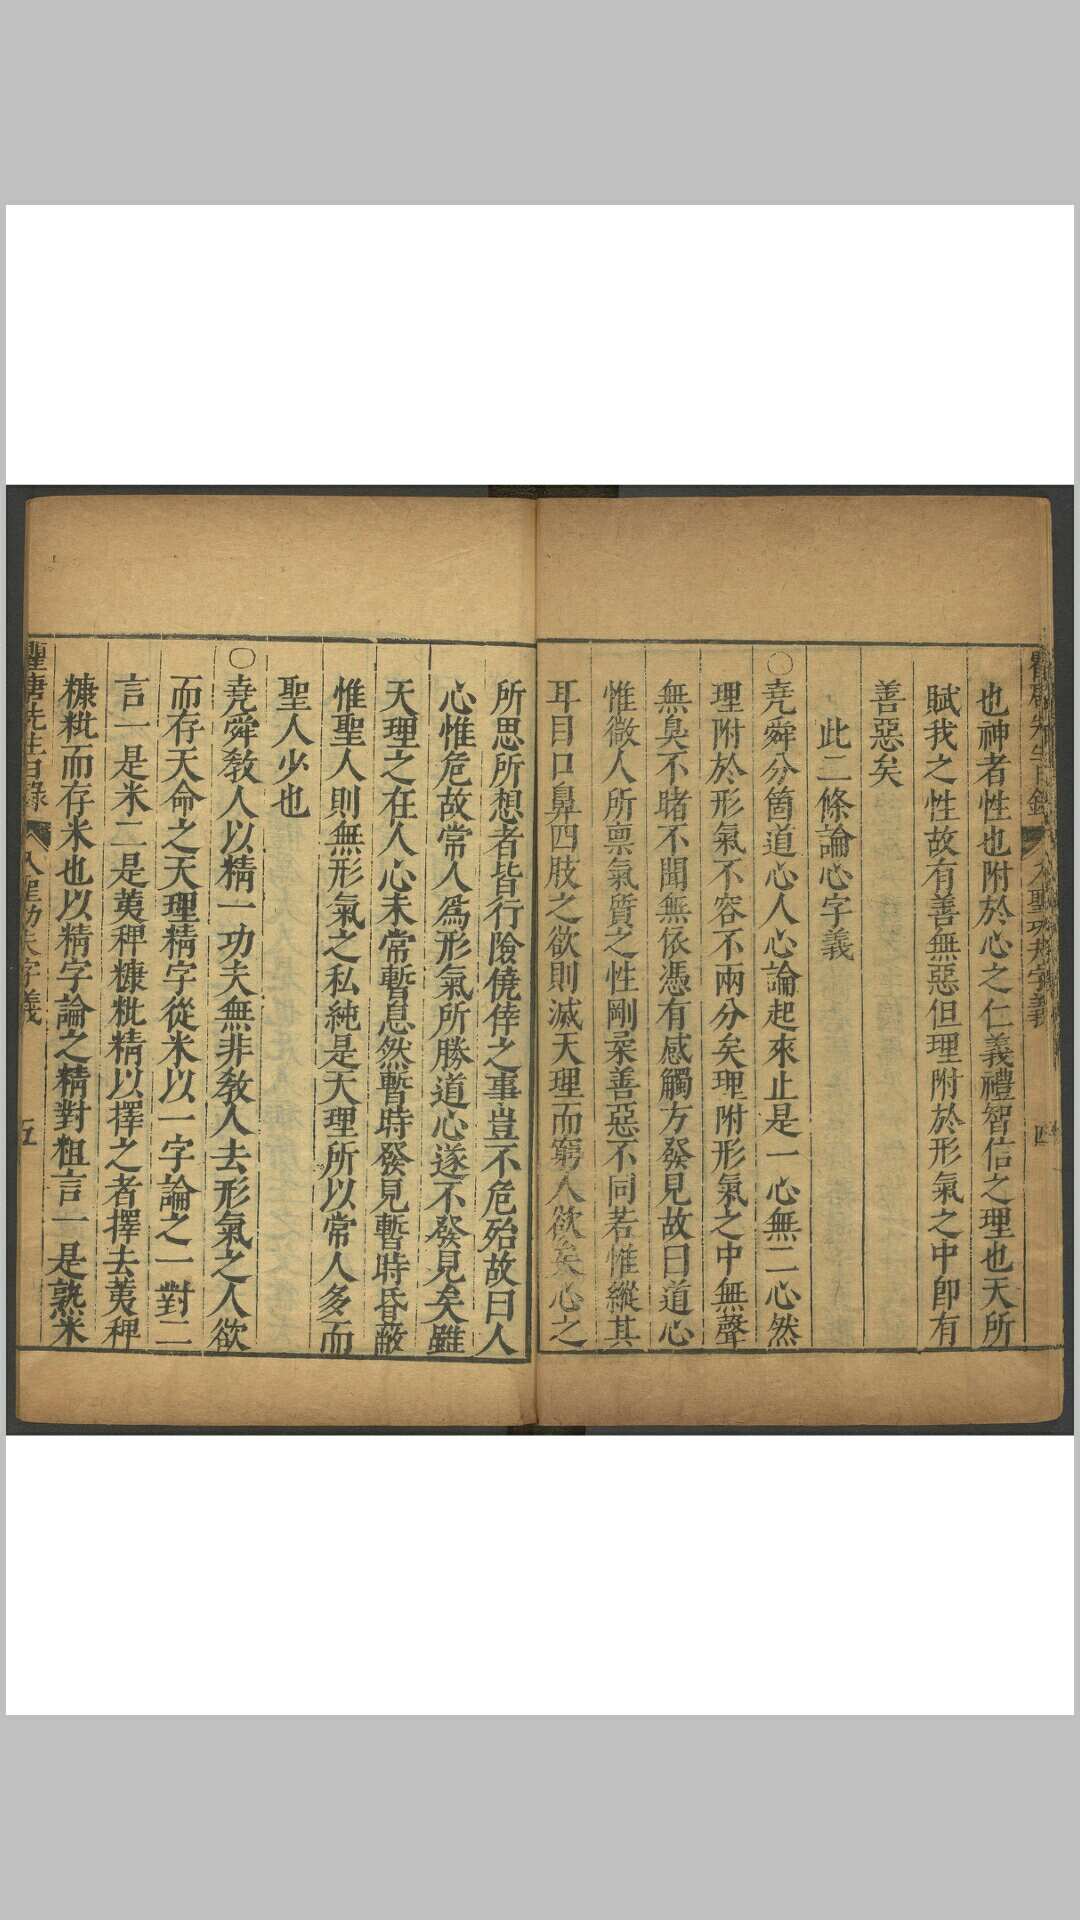 也神者性也附於心之仁義禮智信之理也天所
賦我之性故有善無惡但理附於形氣之中卽有
善惡矣
此二條論心字義
○堯舜分箇道心人心論起來止是一心無二心然
理附於形氣不容不兩分矣理附形氣之中無聲
無臭不睹不聞無依憑有感觸方發見故曰道心
惟微人所禀氣質之性剛柔善惡不同若惟縱其
耳目口鼻四肢之欲則滅天理而窮人欲矣心之
所思所想者皆行險僥倖之事豈不危殆故曰人
心惟危故常人爲形氣所勝道心遂不發見矣雖
天理之在人心未常暫息然暫時發見暫時昏蔽
惟聖人則無形氣之私純是天理所以常人多而
聖人少也
○堯舜敎人以精一功夫無非敎人去形氣之人欲
而存天命之天理精字從米以一字論之一對二
言一是米二是荑稗糠粃精以擇之者擇去荑稗
糠粃而存米也以精字論之精對粗言一是熟米
瞿唐先生日錄 入聖功夫字義 五